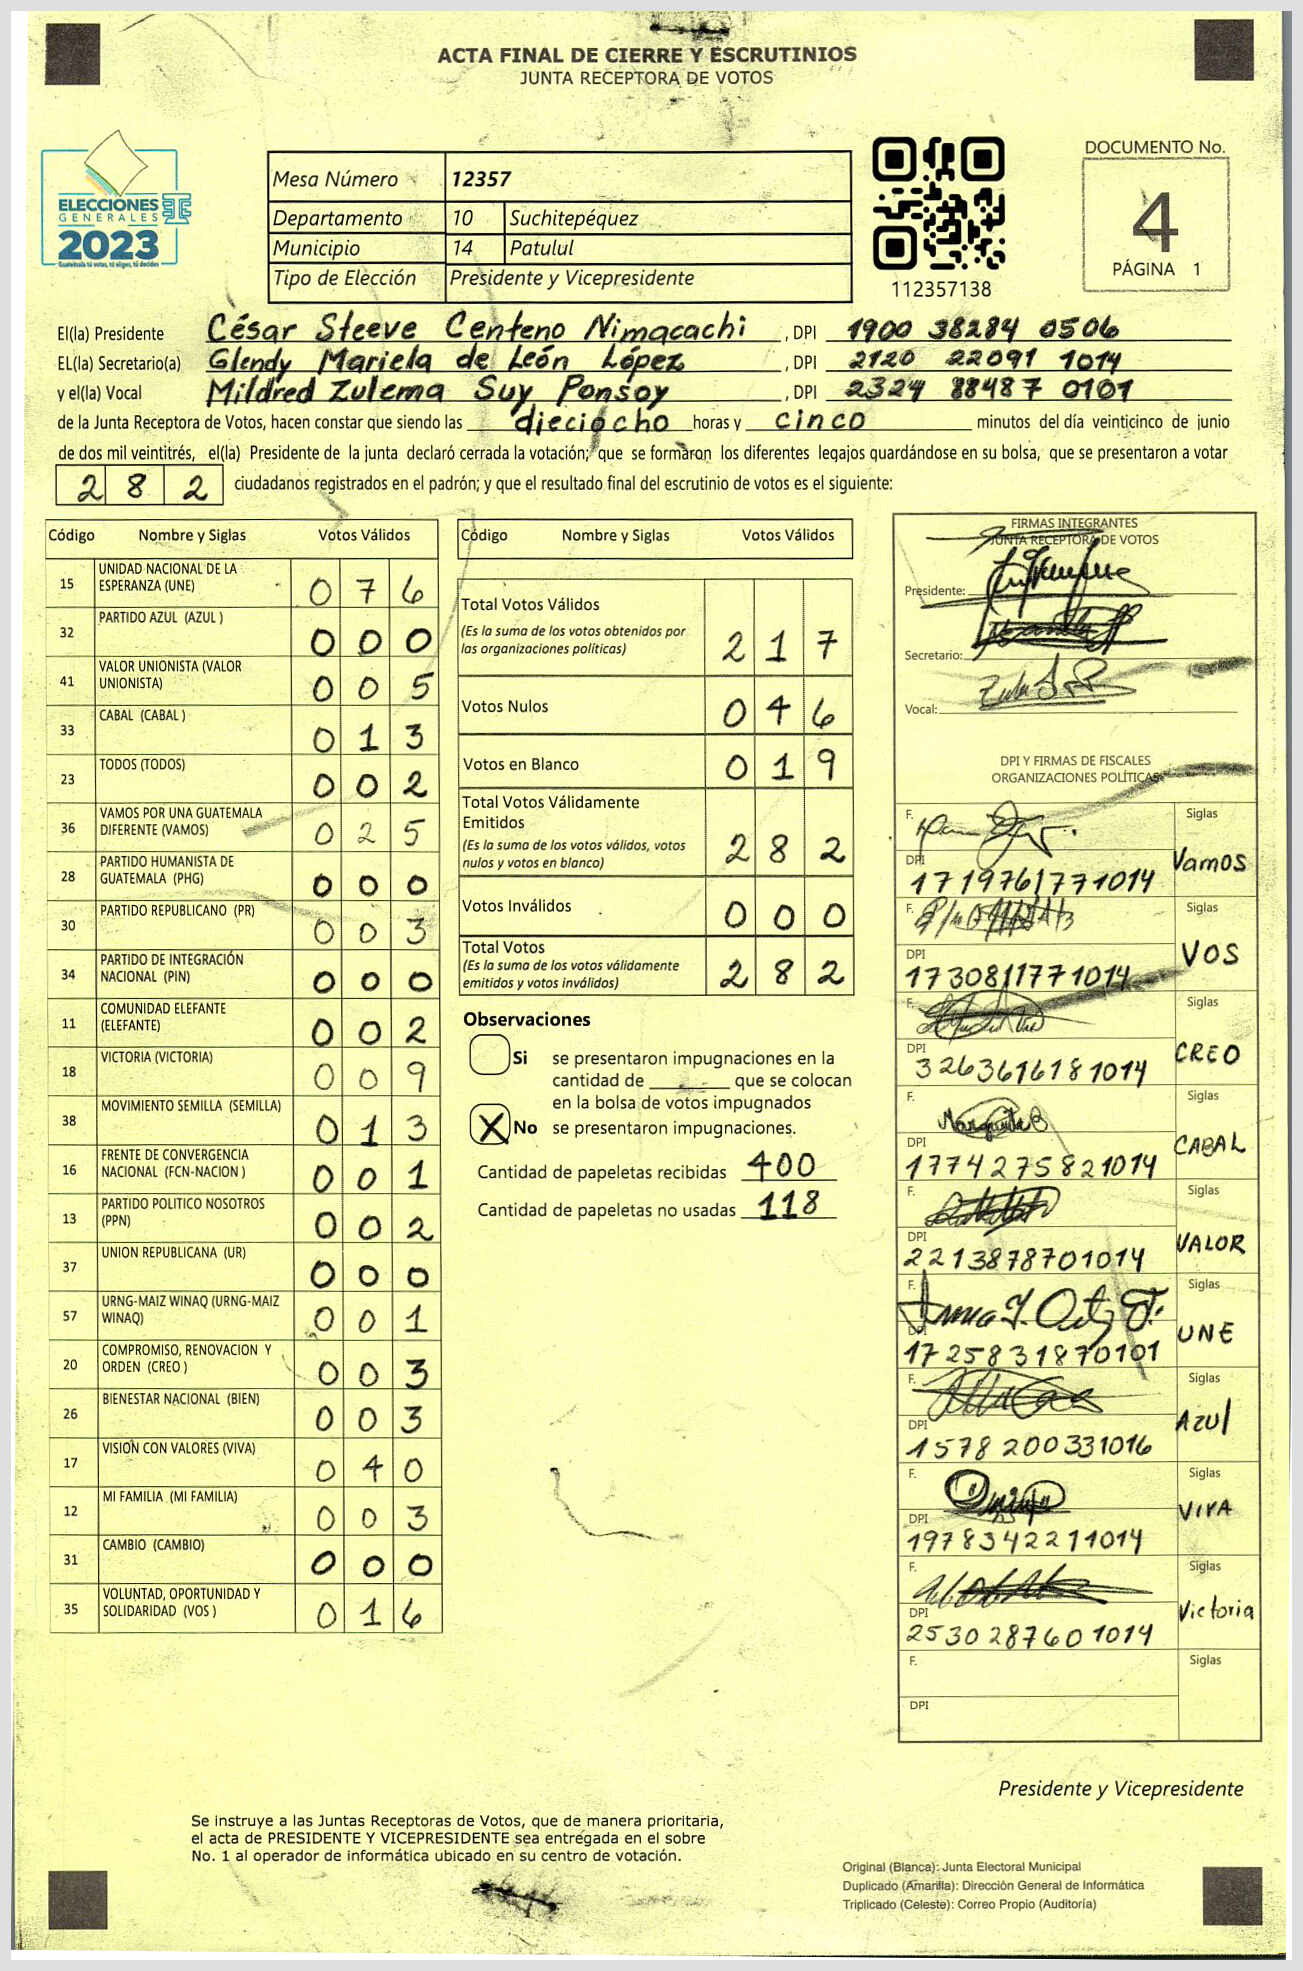 ACTA FINAL DE CIERRE Y ESCRUTINIOS
JUNTA RECEPTORA DE VOTOS
ELECCIONES
GENERALES
2023
Guatemala tú votas, tú eliges, tú decides
Mesa Número 12357
Departamento 10 Suchitepéquez
Municipio 14 Patulul
Tipo de Elección Presidente y Vicepresidente
112357138
DOCUMENTO No.
4
PÁGINA 1
El(la) Presidente César Steeve Centeno Nimacachi , DPI 1900 38284 0506
EL(la) Secretario(a) Glendy Mariela de León López , DPI 2120 22091 1014
y el(la) Vocal Mildred Zulema Suy Ponsoy , DPI 2324 88487 0101
de la Junta Receptora de Votos, hacen constar que siendo las dieciocho horas y cinco minutos del día veinticinco de junio
de dos mil veintitrés, el(la) Presidente de la junta declaró cerrada la votación; que se formaron los diferentes legajos quardándose en su bolsa, que se presentaron a votar
282 ciudadanos registrados en el padrón; y que el resultado final del escrutinio de votos es el siguiente:
Código Nombre y Siglas Votos Válidos
15 UNIDAD NACIONAL DE LA
ESPERANZA (UNE) 076
32 PARTIDO AZUL (AZUL ) 000
41 VALOR UNIONISTA (VALOR
UNIONISTA) 005
33 CABAL (CABAL ) 013
23 TODOS (TODOS) 002
36 VAMOS POR UNA GUATEMALA
DIFERENTE (VAMOS) 025
28 PARTIDO HUMANISTA DE
GUATEMALA (PHG) 000
30 PARTIDO REPUBLICANO (PR) 003
34 PARTIDO DE INTEGRACIÓN
NACIONAL (PIN) 000
11 COMUNIDAD ELEFANTE
(ELEFANTE) 002
18 VICTORIA (VICTORIA) 009
38 MOVIMIENTO SEMILLA (SEMILLA) 013
16 FRENTE DE CONVERGENCIA
NACIONAL (FCN-NACION ) 001
13 PARTIDO POLITICO NOSOTROS
(PPN) 002
37 UNION REPUBLICANA (UR) 000
57 URNG-MAIZ WINAQ (URNG-MAIZ
WINAQ) 001
20 COMPROMISO, RENOVACION Y
ORDEN (CREO ) 003
26 BIENESTAR NACIONAL (BIEN) 003
17 VISION CON VALORES (VIVA) 040
12 MI FAMILIA (MI FAMILIA) 003
31 CAMBIO (CAMBIO) 000
35 VOLUNTAD, OPORTUNIDAD Y
SOLIDARIDAD (VOS ) 016
Código Nombre y Siglas Votos Válidos
Total Votos Válidos
(Es la suma de los votos obtenidos por
las organizaciones politicas) 217
Votos Nulos 046
Votos en Blanco 019
Total Votos Válidamente
Emitidos
(Es la suma de los votos válidos, votos
nulos y votos en blanco) 282
Votos Inválidos 000
Total Votos
(Es la suma de los votos válidamente
emitidos y votos inválidos) 282
Observaciones
Si se presentaron impugnaciones en la
cantidad de ____ que se colocan
en la bolsa de votos impugnados
X No se presentaron impugnaciones.
Cantidad de papeletas recibidas 400
Cantidad de papeletas no usadas 118
FIRMAS INTEGRANTES
JUNTA RECEPTORA DE VOTOS
Presidente:
Secretario:
Vocal:
DPI Y FIRMAS DE FISCALES
ORGANIZACIONES POLÍTICAS
F. Siglas
Vamos
DPI 1719761771014
F. Siglas
VOS
DPI 1730811771014
F. Siglas
CREO
DPI 3263616181014
F. Siglas
CABAL
DPI 1774275821014
F. Siglas
VALOR
DPI 2213878701014
F. Siglas
UNE
DPI 1725831870101
F. Siglas
Azul
DPI 1578200331016
F. Siglas
VIVA
DPI 1978342211014
F. Siglas
Victoria
DPI 2530287601014
F. Siglas
DPI
Presidente y Vicepresidente
Se instruye a las Juntas Receptoras de Votos, que de manera prioritaria,
el acta de PRESIDENTE Y VICEPRESIDENTE sea entregada en el sobre
No. 1 al operador de informática ubicado en su centro de votación.
Original (Blanca): Junta Electoral Municipal
Duplicado (Amarilla): Dirección General de Informática
Triplicado (Celeste): Correo Propio (Auditoría)